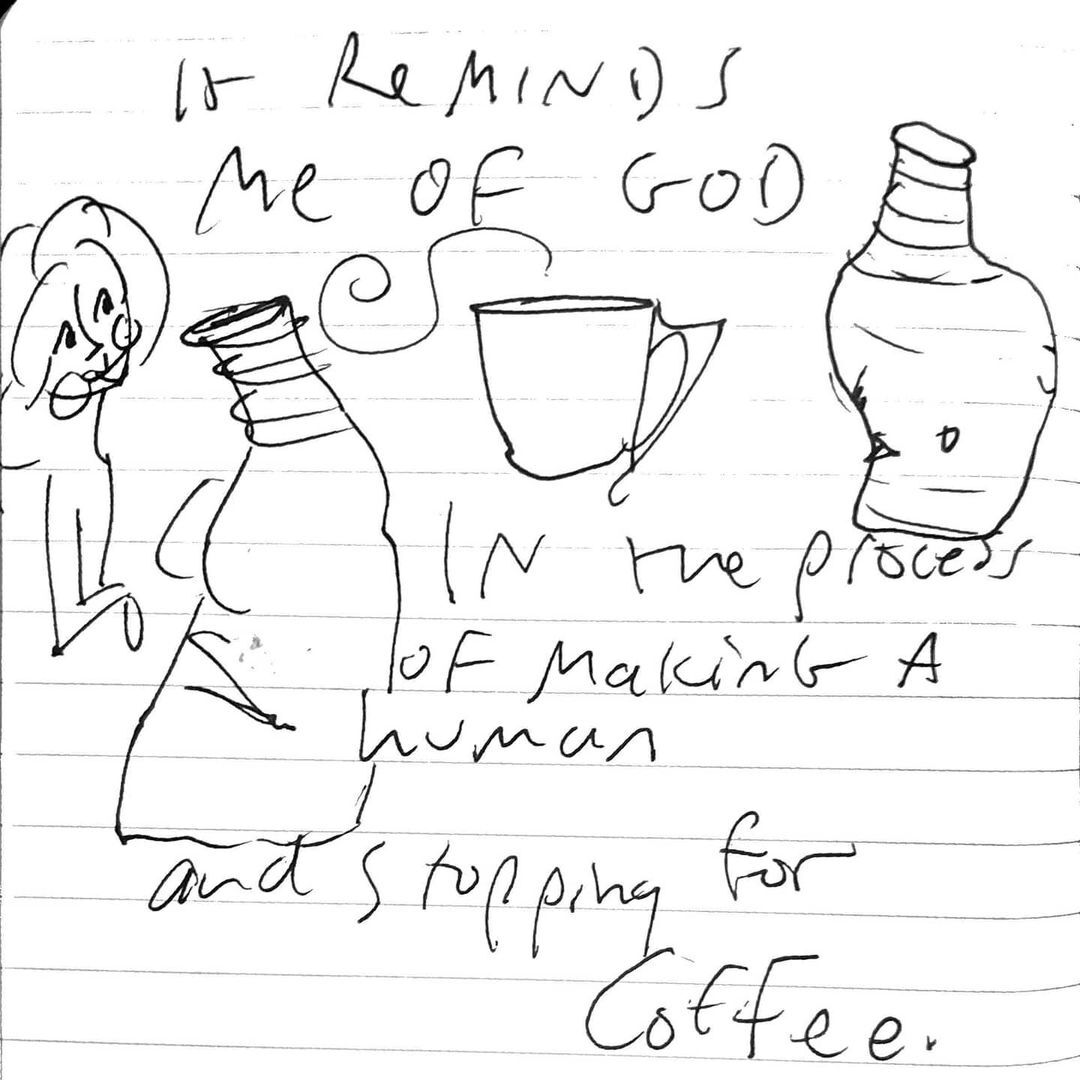 It ReMINDS
Me OF GOD
IN the process
OF MakinG A
human
and stopping for
Coffee.